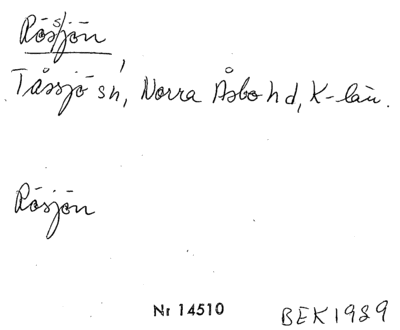 Rössjön
Tåssjö sn, Norra Åsbo hd, K-län.
Rösjön
Nr 14510
BEK 1989